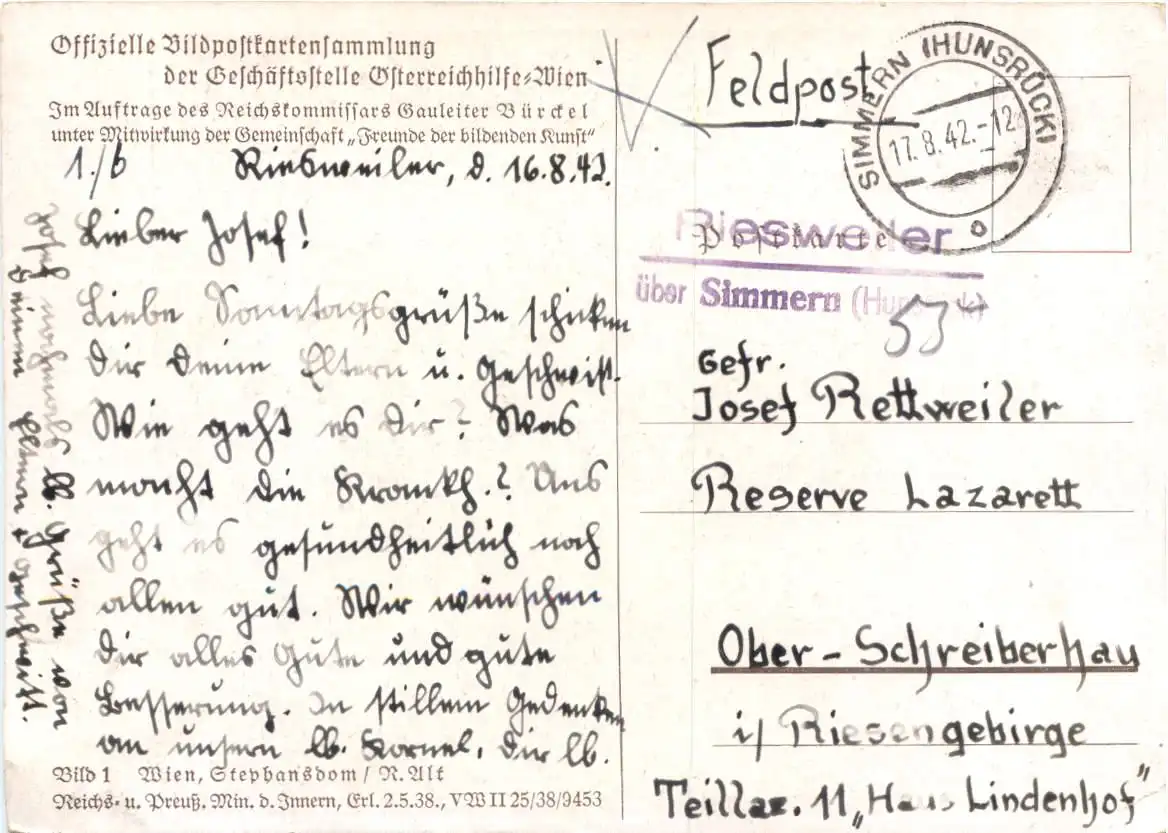 Offizielle Bildpostkartensammlung
der Geschäftsstelle Österreichhilfe-Wien
Im Auftrage des Reichskommissars Gauleiter Bürckel
unter Mitwirkung der Gemeinschaft „Freunde der bildenden Kunst“
1./b Riesweiler, d. 16.8.42.
Lieber Josef!
Liebe Sonntagsgrüße schicken
Dir Deine Eltern u. Geschwist.
Wie geht es Dir? Was
macht die Krankh.? Uns
geht es gesundheitlich noch
allen gut. Wir wünschen
Dir alles Gute und gute
Besserung. In stillem Gedenken
an unsern lb. Kornel, Dir lb.
Josef nochmals lb. Grüße von
Deinen Eltern + Geschwist.
Bild 1 Wien, Stephansdom / R. Alt
Reichs- u. Preuß. Min. d. Innern, Erl. 2.5.38., VW II 25/38/9453
Feldpost
SIMMERN (HUNSRÜCK)
17.8.42.-12
Postkarte
Riesweiler
über Simmern (Hunsrück)
53
Gefr.
Josef Rettweiler
Reserve Lazarett
Ober-Schreiberhau
i/ Riesengebirge
11 „Haus Lindenhof“